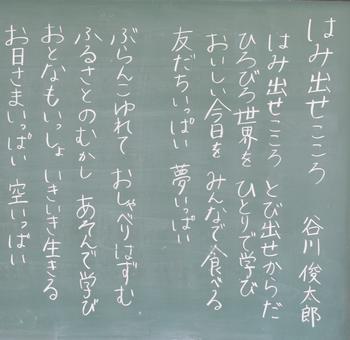 はみ出せこころ　谷川 俊太郎
はみ出せこころ　とび出せからだ
ひろびろ世界を　ひとりで学び
おいしい今日を　みんなで食べる
友だちいっぱい　夢いっぱい
ぶらんこゆれて　おしゃべりはずむ
ふるさとのむかし　あそんで学び
おとなもいっしょ　いきいき生きる
お日さまいっぱい　空いっぱい